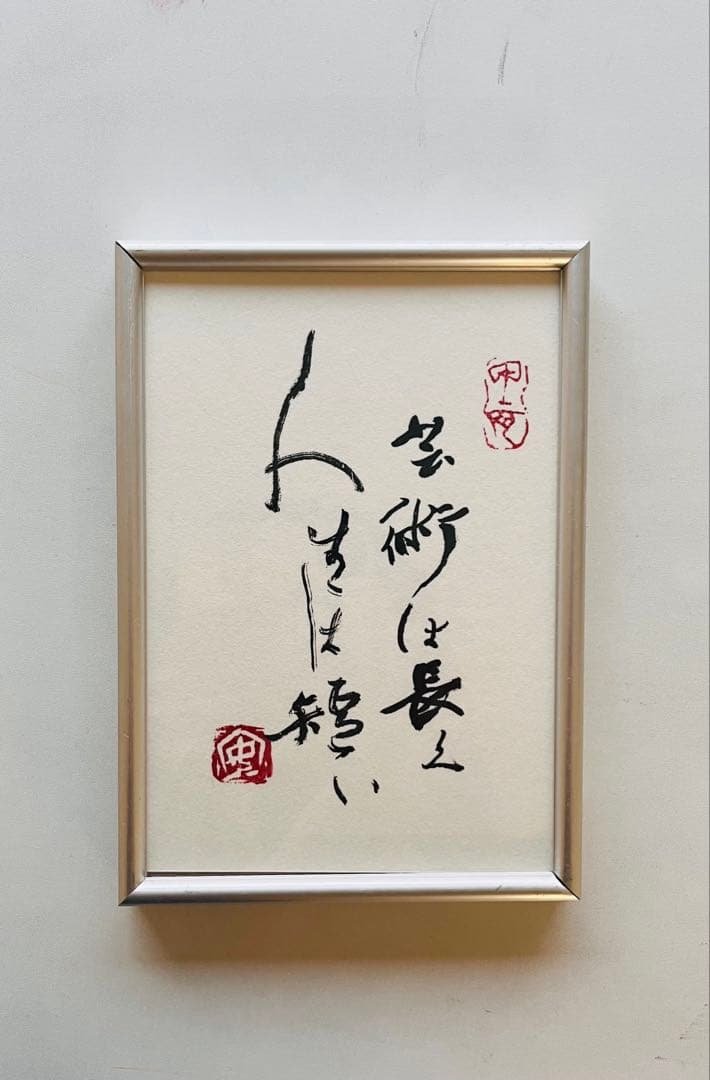 芸術は長く
人生は短い